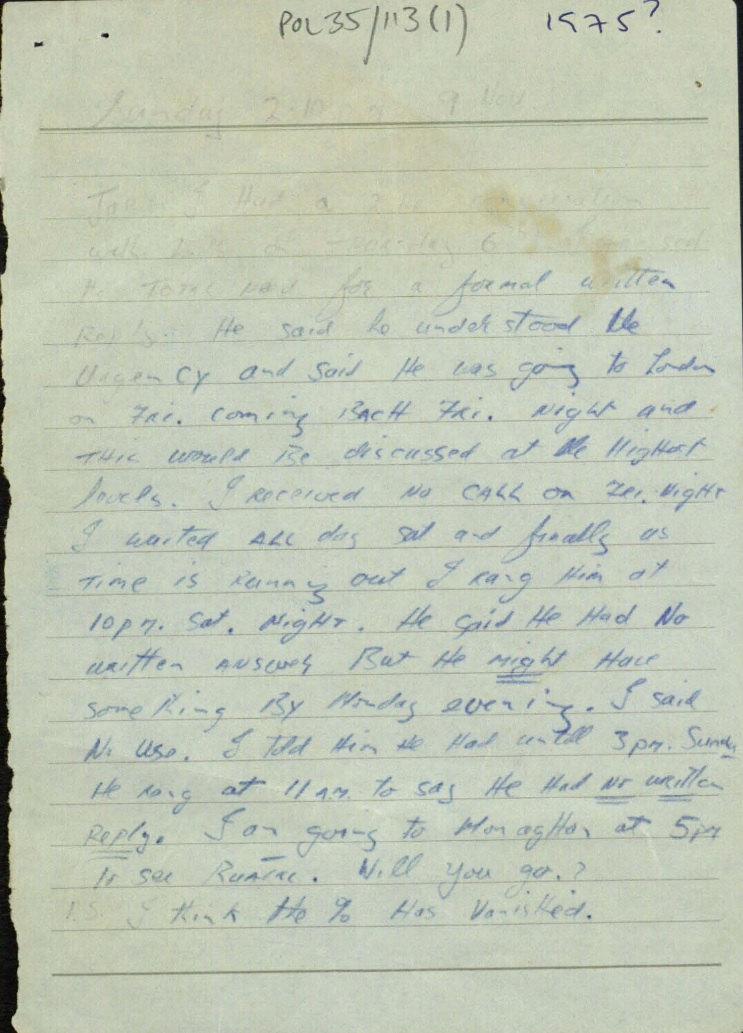 POL35/113(1) 1975?
Sunday 2.10 pm 9 Nov
Joe. I Had a 2 Hr conversation
with on Thursday 6
He for a formal written
Reply. He said he understood the
Urgency and said He was going to London
on Fri. coming BACK Fri. Night and
THIS would BE discussed at the Highest
levels. I received NO CALL on Fri. Night
I waited ALL day Sat and finally as
Time is Running out I rang Him at
10 pm. Sat. Night. He said He Had No
written ANSWER But He might Have
something By Monday evening. I said
No use. I Told Him He Had until 3 pm. Sunday
He rang at 11 A.M. to say He Had No written
Reply. I am going to Monaghan at 5 pm
to see Ruairi. Will you go.?
P.S. I think the % Has Vanished.